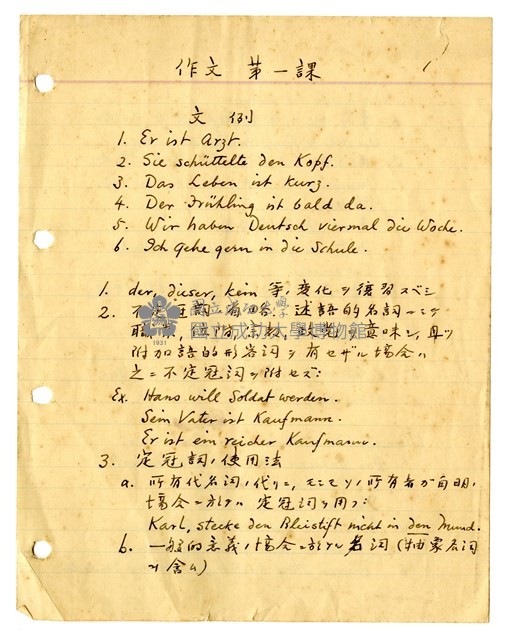 作文 第一課
文例
1. Er ist Arzt.
2. Sie schüttelte den Kopf.
3. Das Leben ist kurz.
4. Der Frühling ist bald da.
5. Wir haben Deutsch viermal die Woche.
6. Ich gehe gern in die Schule.
1. der, dieser, kein 等ノ変化ヲ復習スベシ
2. 不定冠詞ノ省略. 述語的名詞ニシテ
職業, 位階, 国立成功大學博物館 意味シ, 且ツ
附加語的形容詞ヲ有セザル場合ハ
之ニ不定冠詞ヲ附セズ:
Ex. Hans will Soldat werden.
Sein Vater ist Kaufmann.
Er ist ein reicher Kaufmann.
3. 定冠詞ノ使用法
a. 所有代名詞ノ代リニ, 所有者が自明ノ
場合ニ於テハ 定冠詞ヲ用フ:
Karl, stecke den Bleistift nicht in den Mund.
b. 一般的意義ノ場合ニ於ケル名詞 (抽象名詞
ヲ含ム)
1931